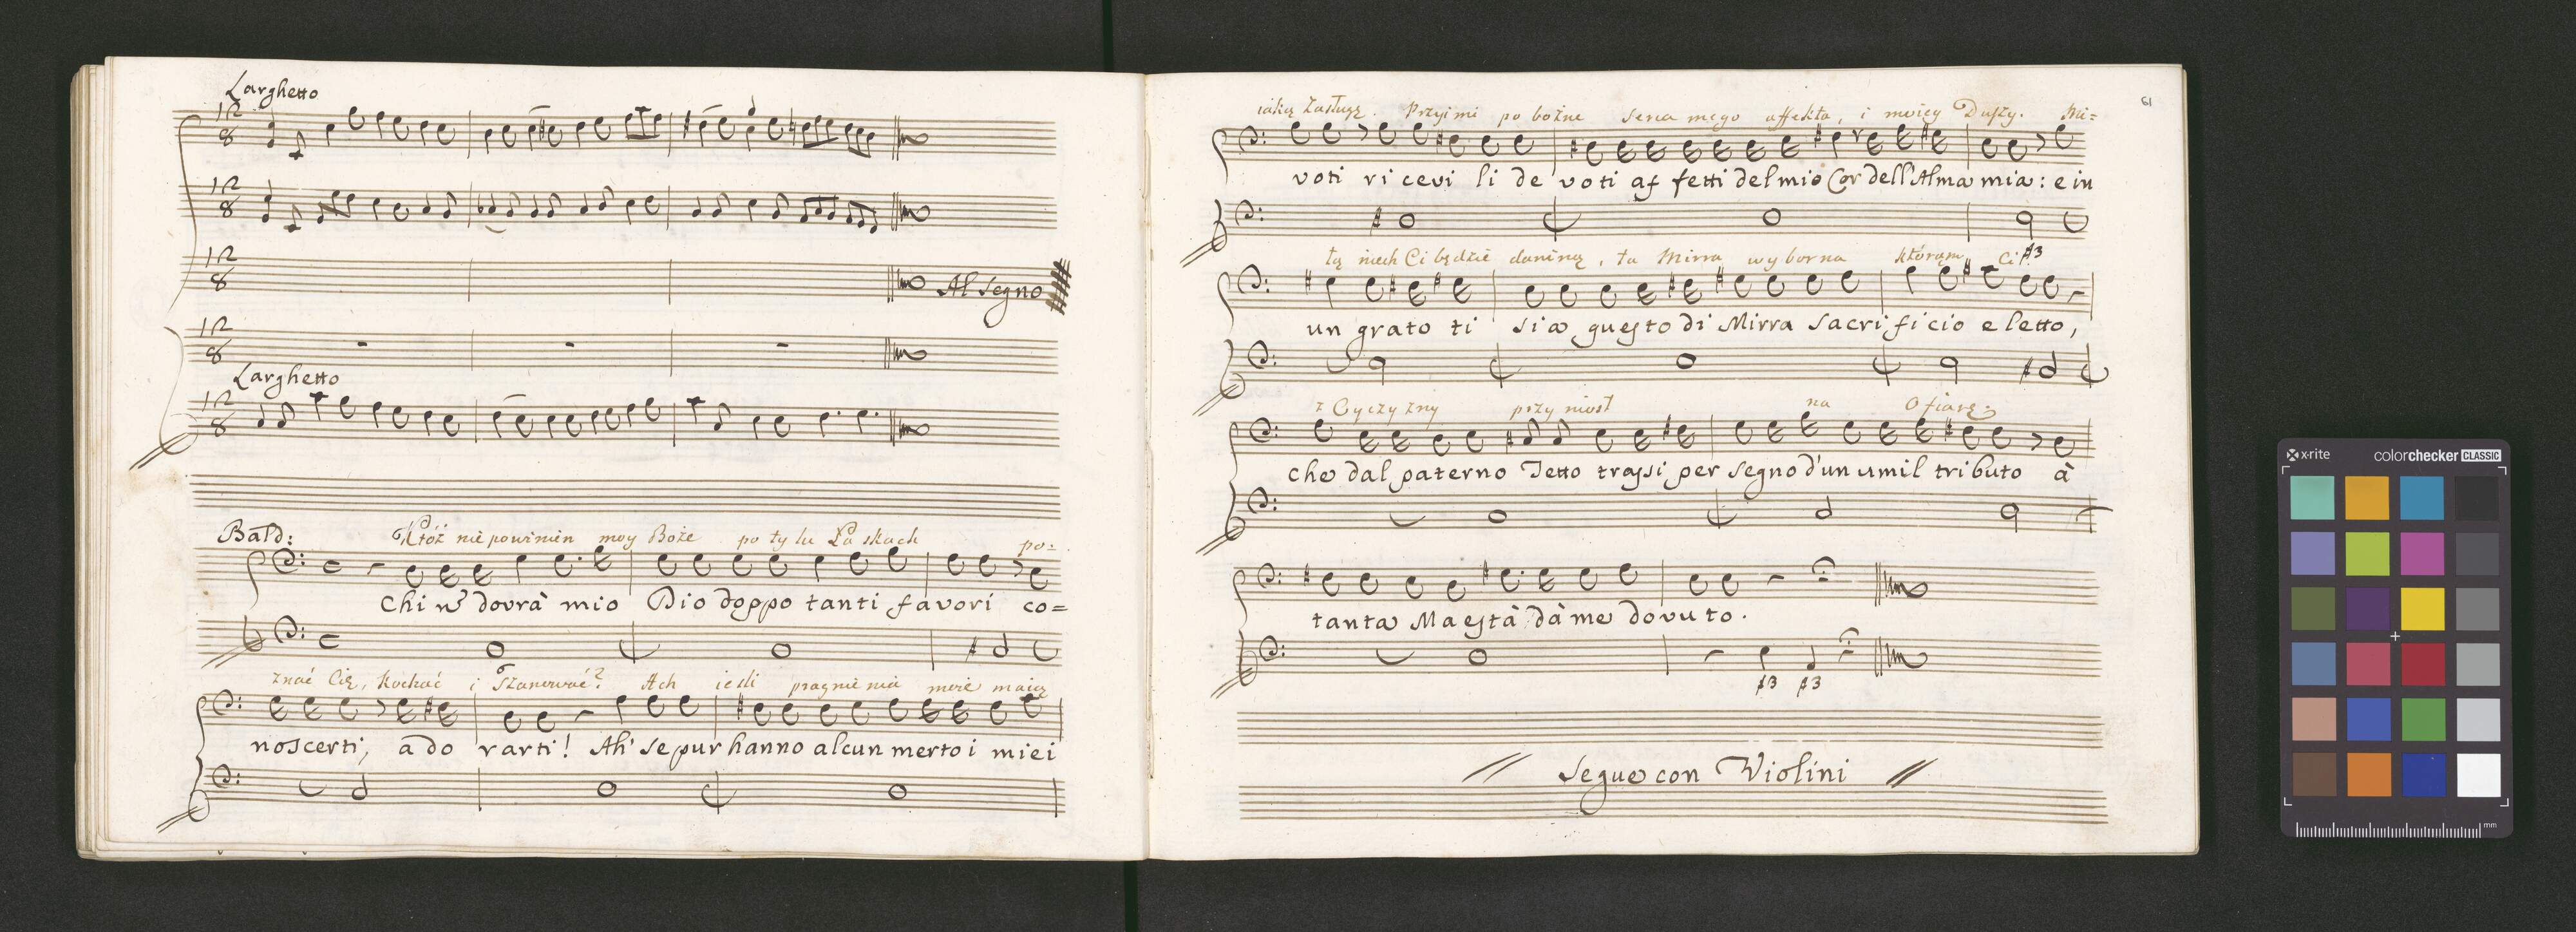 Larghetto
12 8
12 8
12 8
Al Segno
12 8
Larghetto
12 8
Bald:
Któż nie powinien moy Boże po ty lu Ła skach po=
Chi nõ dovrà mio Dio doppo tanti favori co=
znać Cię, kochać i Szanować? Ach ieśli pragnie nia moie maią
noscerti, ado rarti! Ah' se pur hanno alcun merto i miei
61
iaką Zasługę. Przyimi po bożne serca mego affekta, i moiey Duszy. Mi=
voti ri cevi li de voti af fetti del mio Cor dell'Alma mia: e in
łą niech Ci będzie daniną, ta Mirra wy borna którąm Ci
#3
un grato ti sia questo di Mirra Sacri ficio e letto,
z Oyczy zny przy niosł na Ofiarę.
che dal paterno Tetto trassi per segno d'un umil tributo à
tanta Maestà dà me dovu to.
#3 #3
Segue con Violini
x-rite colorchecker CLASSIC
mm